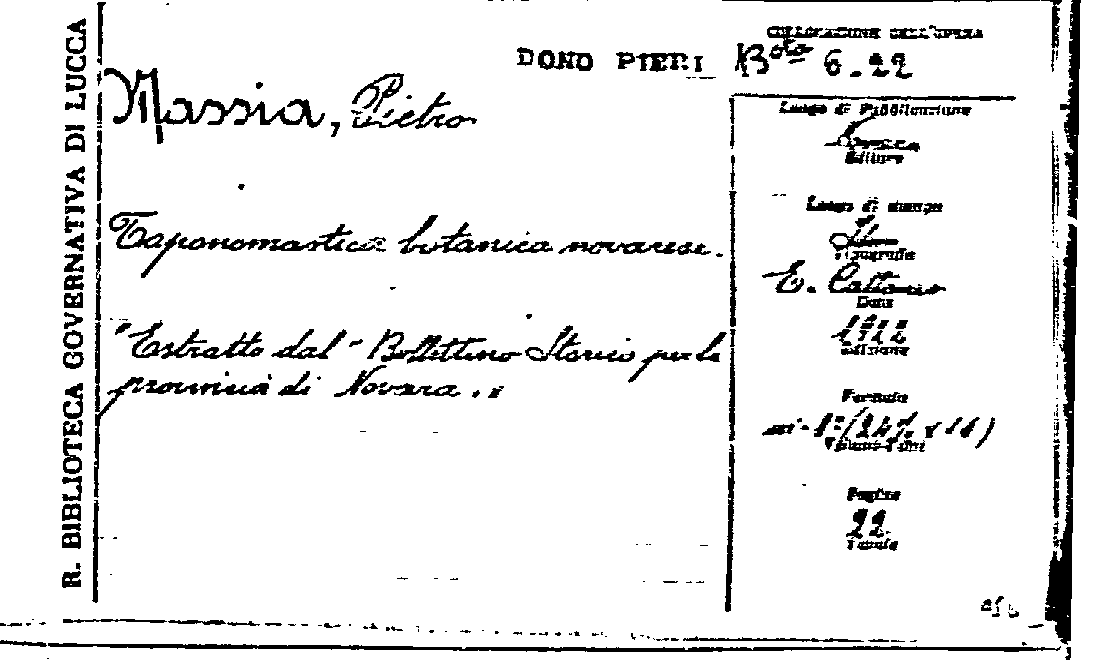 R. BIBLIOTECA GOVERNATIVA DI LUCCA
COLLOCAZIONE DELL'OPERA
DONO PIERI B.ta 6.22
Massia, Pietro
Toponomastica botanica novarese.
"Estratto dal "Bollettino Storico per la
provincia di Novara."
Luogo di Pubblicazione
Editore
Luogo di stampa
Tipografia
E. Cattaneo
Data
1922
Edizione
Formato
in-8º (24½ x 16)
Volumi-Tomi
Pagine
22
Tavole